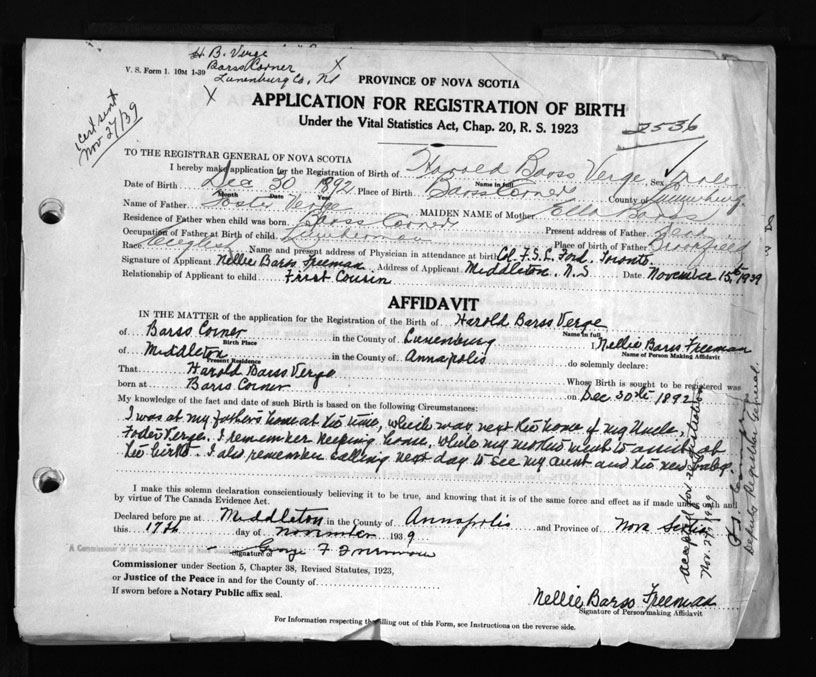 H. B. Verge
Barss Corner
Lunenburg Co. NS
V. S. Form 1. 10M 1-39
X
X
PROVINCE OF NOVA SCOTIA
APPLICATION FOR REGISTRATION OF BIRTH
Under the Vital Statistics Act, Chap. 20, R. S. 1923
2536
Cert sent
Nov 27/39
TO THE REGISTRAR GENERAL OF NOVA SCOTIA
I hereby make application for the Registration of Birth of Harold Barss Verge Sex Male
Name in full
Date of Birth Dec 30 1892 Place of Birth Barss Corner County of Lunenburg
Month Date Year
Name of Father Foster Verge MAIDEN NAME of Mother Ella Barss
Residence of Father when child was born Barss Corner Present address of Father Dead
Occupation of Father at Birth of child Lumberman Place of birth of Father Brookfield
Race English Name and present address of Physician in attendance at birth Col. F. S. L. Ford, Toronto.
Signature of Applicant Nellie Barss Freeman Address of Applicant Middleton, N.S Date November 15th 1939
Relationship of Applicant to child First Cousin
AFFIDAVIT
IN THE MATTER of the application for the Registration of the Birth of Harold Barss Verge
Name in full
of Barss Corner in the County of Lunenburg I, Nellie Barss Freeman
Birth Place Name of Person Making Affidavit
of Middleton in the County of Annapolis do solemnly declare:
Present Residence
That Harold Barss Verge Whose Birth is sought to be registered was
born at Barss Corner on Dec 30th 1892
My knowledge of the fact and date of such Birth is based on the following Circumstances:
I was at my father's home at the time, which was next the home of my Uncle,
Foster Verge. I remember keeping house, while my mother went to assist at
the birth. I also remember calling next day to see my aunt and the new baby.
I make this solemn declaration conscientiously believing it to be true, and knowing that it is of the same force and effect as if made under oath and
by virtue of The Canada Evidence Act.
Declared before me at Middleton in the County of Annapolis and Province of Nova Scotia
this 17th day of November 1939
A Commissioner of the Supreme Court of Nova
Signature of George F. Freeman
Commissioner under Section 5, Chapter 38, Revised Statutes, 1923,
or Justice of the Peace in and for the County of
If sworn before a Notary Public affix seal.
Nellie Barss Freeman
Signature of Person making Affidavit
For Information respecting the filling out of this Form, see Instructions on the reverse side.
Accepted for registration
Nov. 27th 1939
Deputy Registrar General.